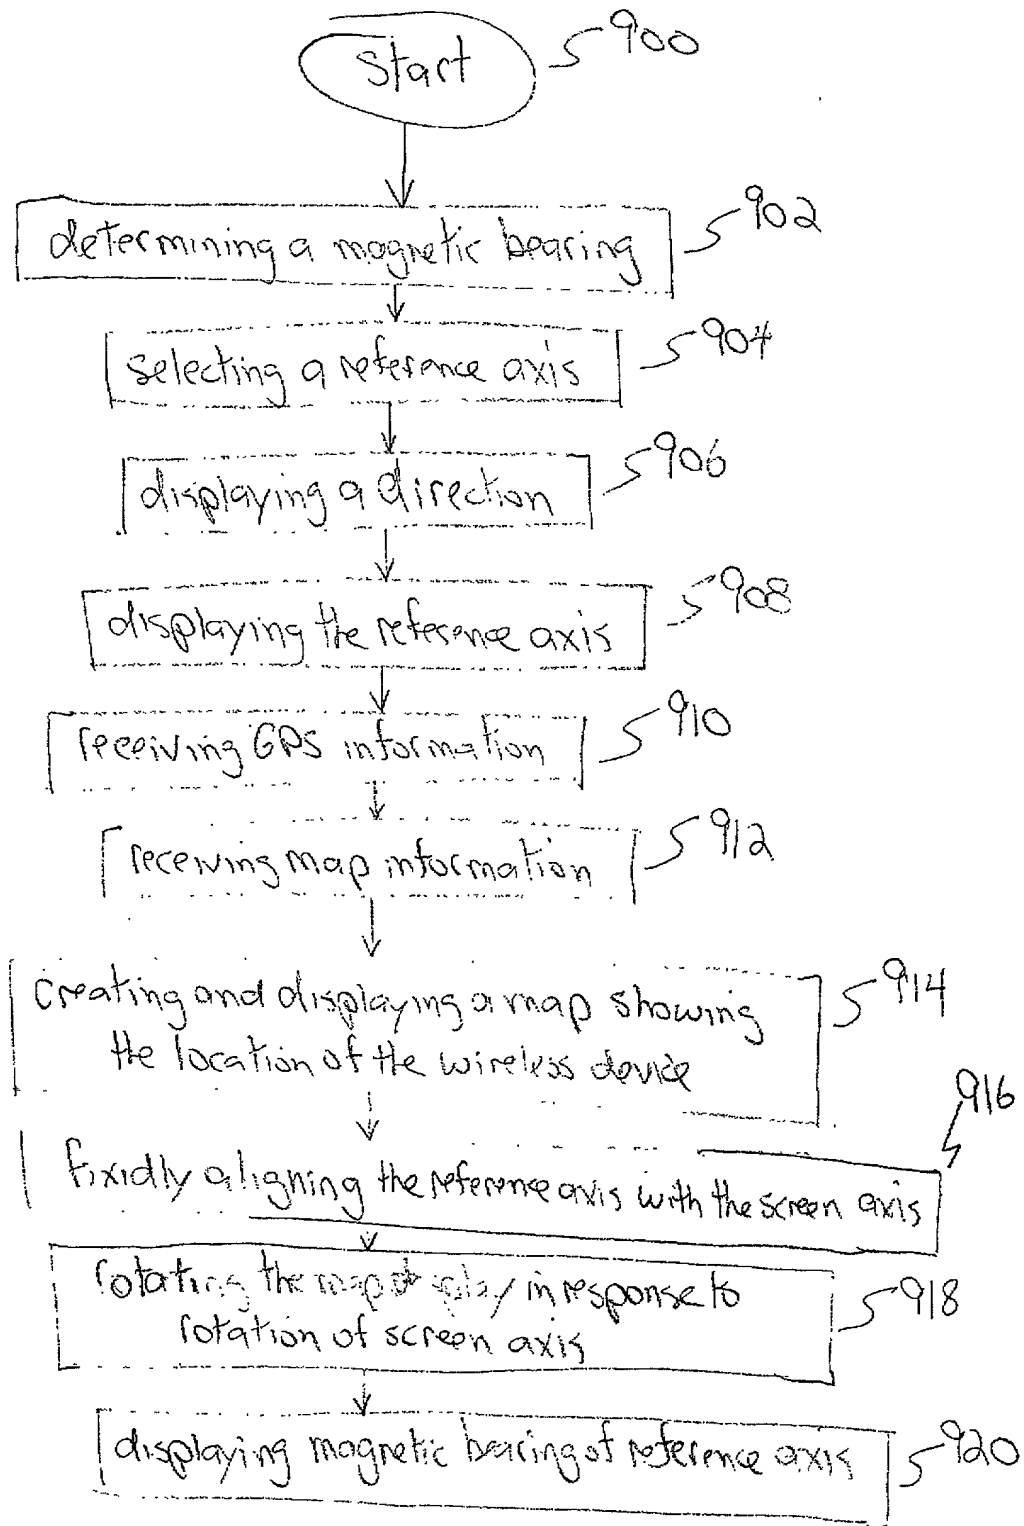 Start
900
determining a magnetic bearing
902
selecting a reference axis
904
displaying a direction
906
displaying the reference axis
908
receiving GPS information
910
receiving map information
912
creating and displaying a map showing
the location of the wireless device
914
916
fixidly aligning the reference axis with the screen axis
rotating the map in response to
rotation of screen axis
918
displaying magnetic bearing of reference axis
920